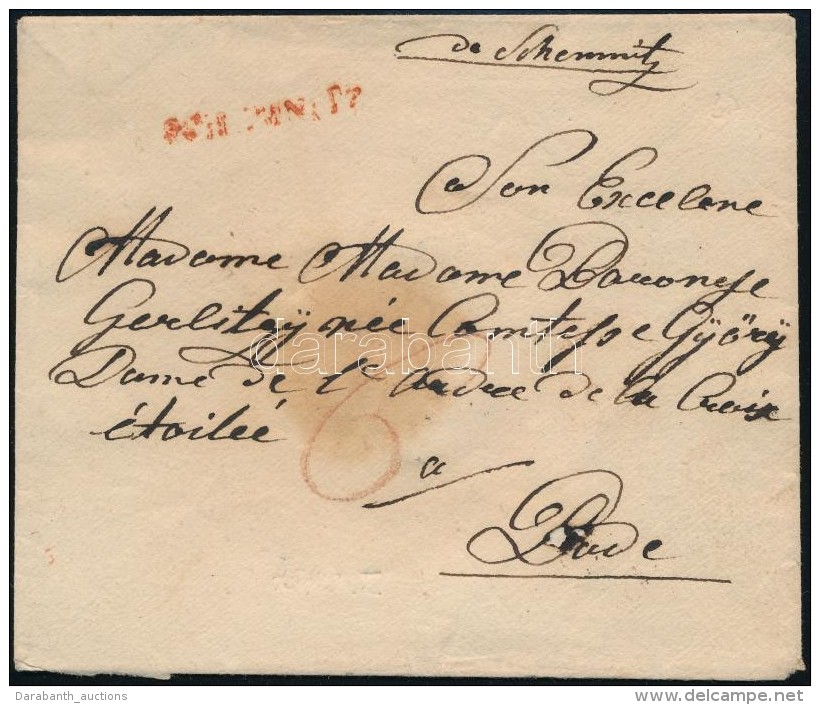 de Schemnitz
SCHEMNITZ
a Son Excelene
Madame Madame Baronesse
Gerlitzÿ née Comtesse Györÿ
darabanth
Dame de l' Ordre de la Croix
étoileé
6
a
Bude
Darabanth_auctions
delcampe.net